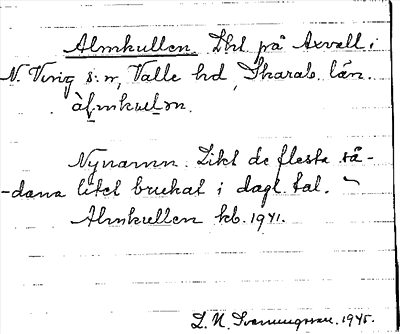 Almkullen. Lht på Axvall i
N. Ving s:n, Valle hd, Skarab. län.
àlmkulən.
Nynamn. Likt de flesta så-
-dana litet brukat i dagl. tal.
Almkullen kb. 1941.
L. N. Svanungsson. 1945.